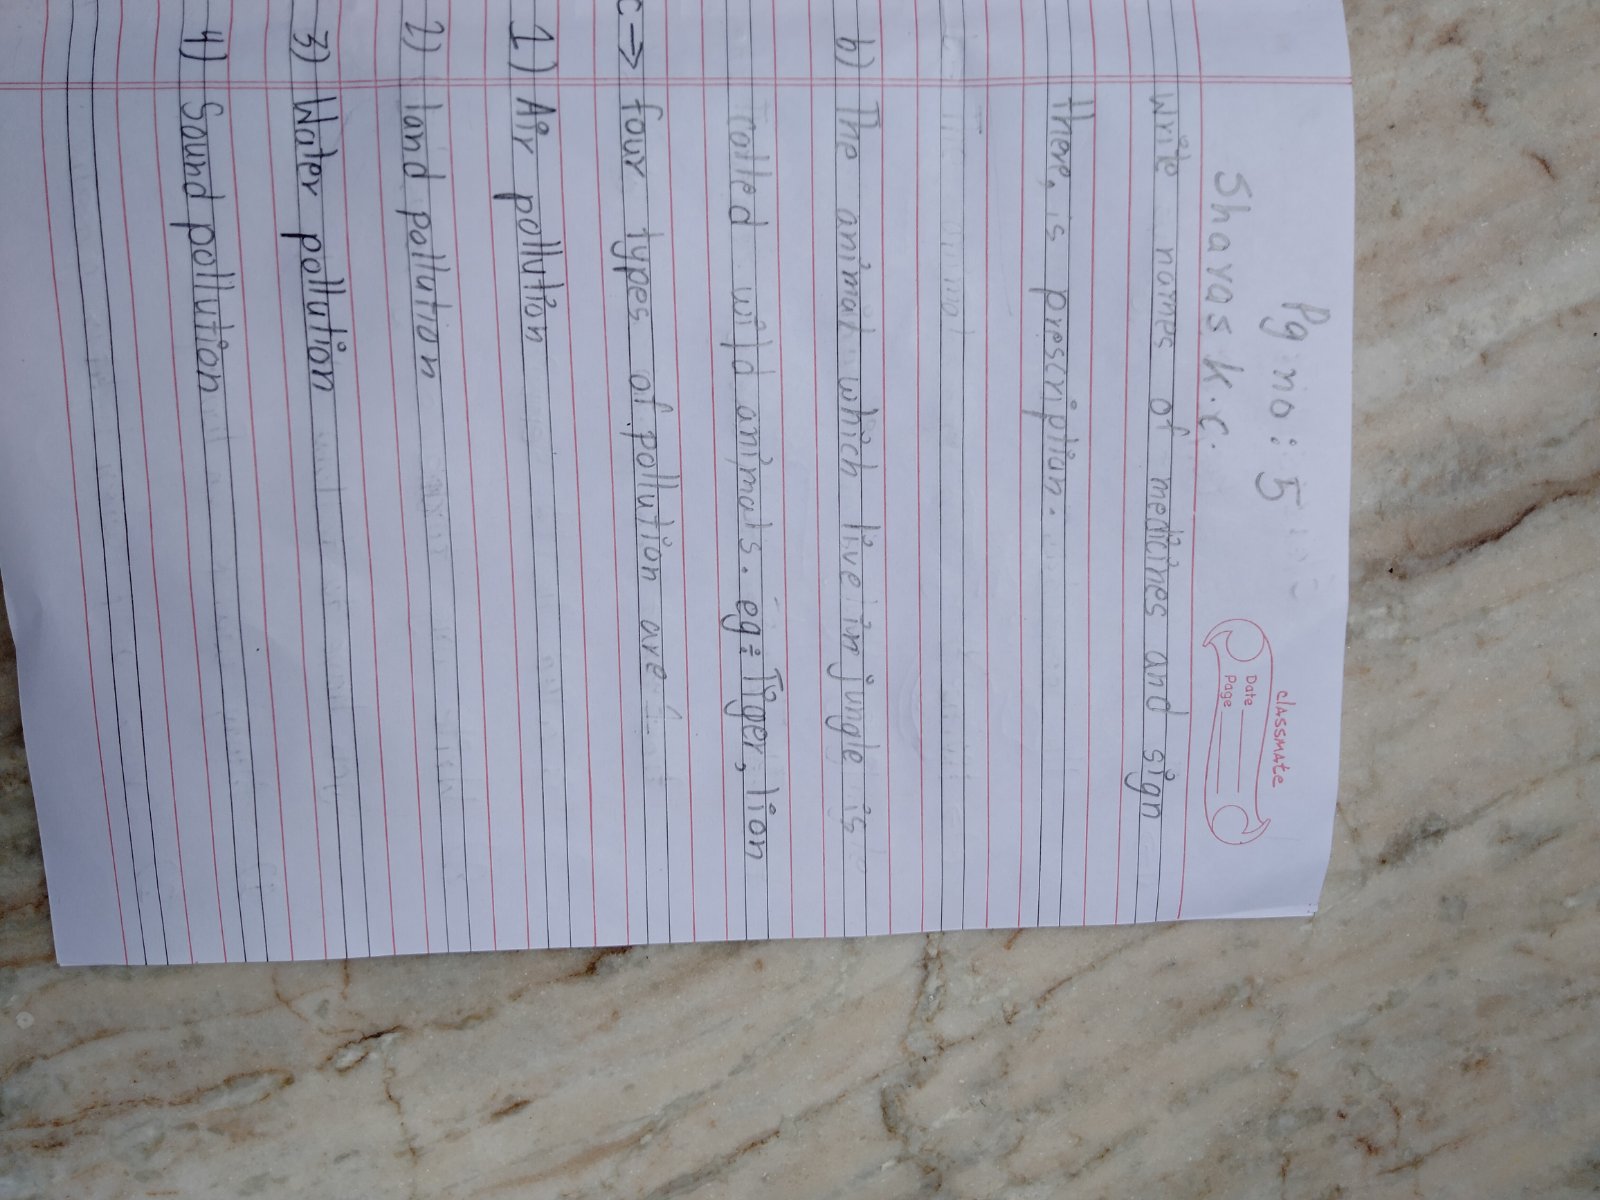 Pg no: 5
Sharas k.c.
classmate
Date
Page
write names of medicines and sign
there, is prescription.
b) The animal which live in jungle is
called wild animals. eg: Tiger, lion
c→ four types of pollution are
1) Air pollution
2) land pollution
3) Water pollution
4) Sound pollution